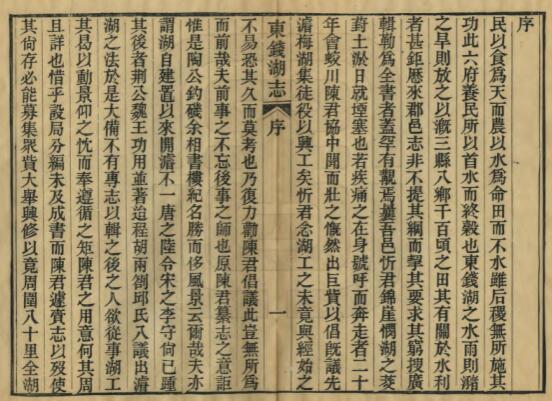 序
民以食為天而農以水為命田而不水雖后稷無所施其
功此六府養民所以首水而終穀也東錢湖之水雨則瀦
之旱則放之以漑三縣八鄉千百頃之田其有關於水利
者甚鉅歷來郡邑志非不提其綱而挈其要求其窮搜廣
輯勒為全書者蓋罕有覯焉曩吾邑忻君錦崖憫湖之茭
葑土淤日就堙塞也若疾痛之在身號呼而奔走者二十
年會蛟川陳君協中聞而壯之慨然出巨貲以倡旣議先
濬梅湖集徒役以興工矣忻君念湖工之未竟與經始之
東錢湖志
序
一
不易恐其久而莫考也乃復力勸陳君倡議此豈無所為
而前哉夫前事之不忘後事之師也原陳君纂志之意詎
惟是陶公釣磯余相書樓紀名勝而侈風景云爾哉夫亦
謂湖自建置以來開濬不一唐之陸令宋之李守尙已踵
其後者荆公魏王功用並著迨程胡兩劄邱氏八議出濬
湖之法於是大備不有專志以輯之後之人欲從事湖工
其曷以動景仰之忱而奉遵循之矩陳君之用意何其周
且詳也惜乎設局分編未及成書而陳君遽賫志以歿使
其尙存必能募集衆貲大舉興修以竟周圍八十里全湖